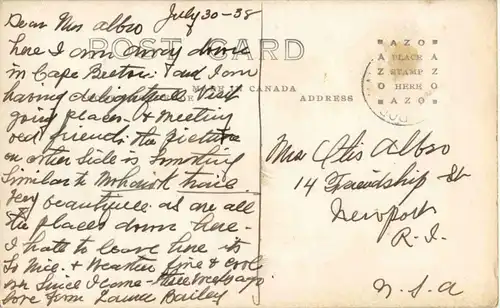 July 30-38
Dear Mrs Albro
here I am away down
in Cape Breton & and I am
having delightfull visit
going places & meeting
old friends the picture
on other side is something
similar to Mohawk trail.
very beautifull as are all
the places down here -
I hate to leave here its
so nice. & weather fine & cool
since I came - three weeks ago
love from Laura Bailey
POST CARD
MADE IN CANADA
ADDRESS
AZO
A PLACE A
Z STAMP Z
O HERE O
AZO
Mrs Otis Albro
14 Friendship St
Newport
R. I.
U. S. A